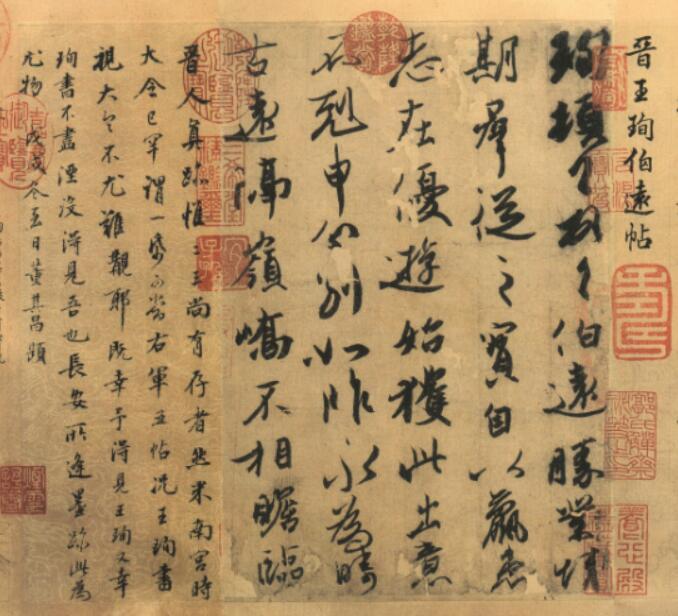 晉王珣伯遠帖
珣頓〻首〻伯遠勝業情
期群從之寶自以羸患
志在優遊始獲此出意
不剋申分別如昨永為疇
古遠隔嶺嶠不相瞻臨
晉人真跡惟二王尚有存者然米南宮時
大令已罕謂一紙可當右軍五帖況王珣書
視大令不尤難覯耶既幸予得見王珣又幸
珣書不盡湮沒得見吾也長安所逢墨跡此為
尤物 戊戌冬至日董其昌題